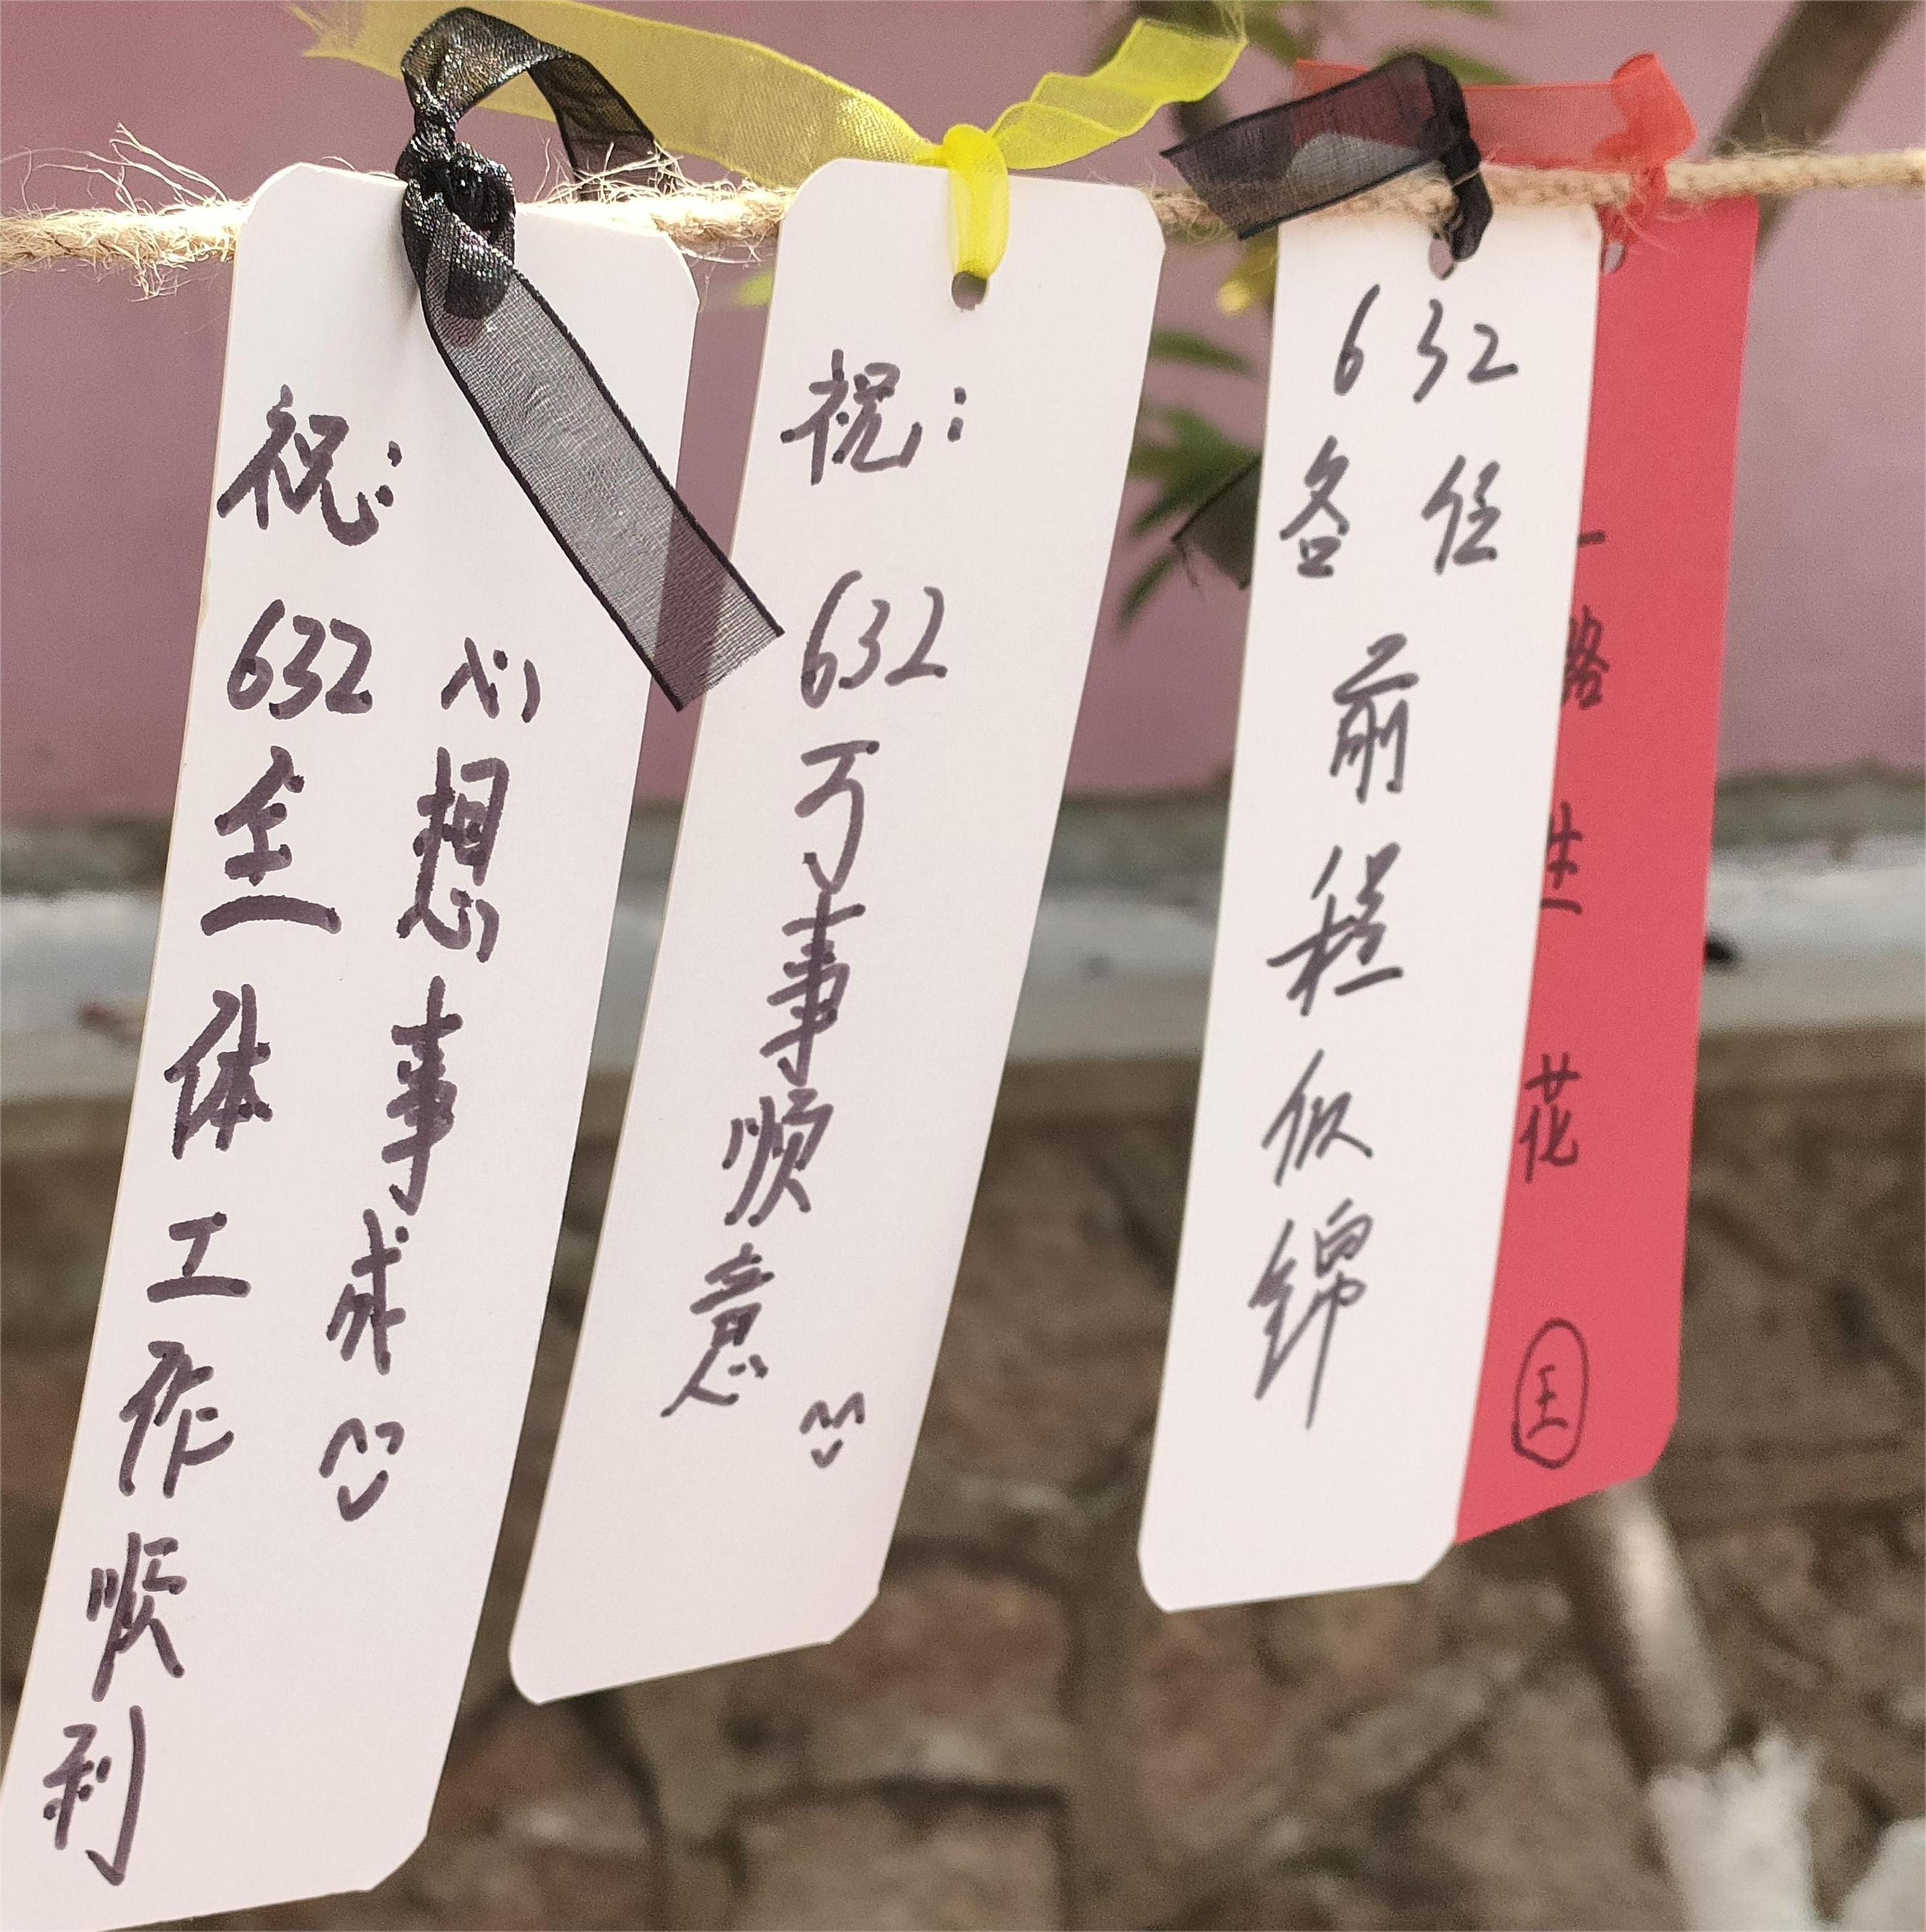 祝:
632全体工作顺利
心想事成
祝:
632万事顺意
632
各位
前程似锦
一路生花
王